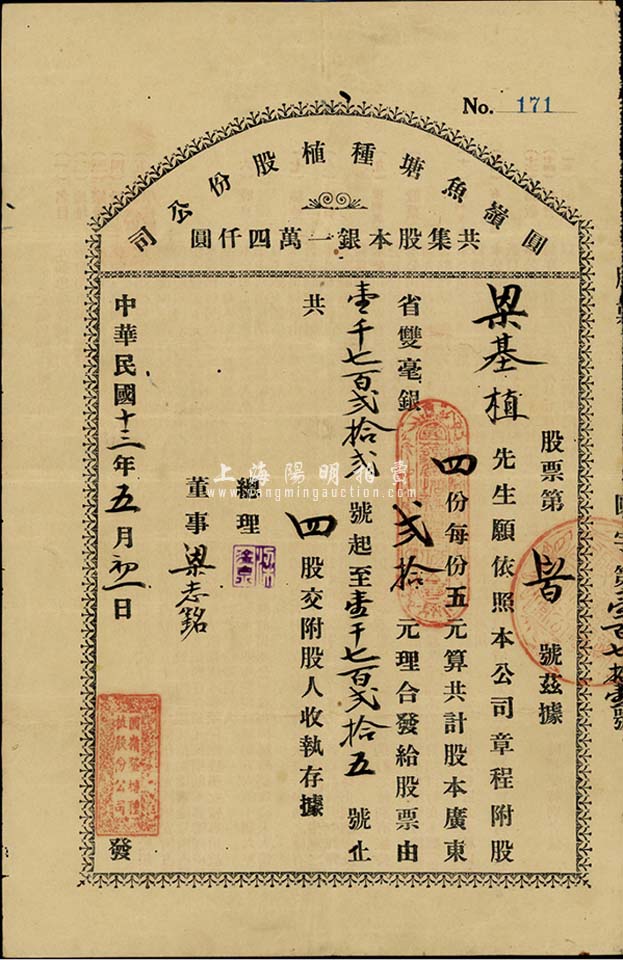 No. 171
圓嶺魚塘種植股份公司
共集股本銀一萬四仟圓
股票第 號茲據
梁基植先生願依照本公司章程附股
四份每份五元算共計股本廣東
省雙毫銀弍拾元理合發給股票由
壹千七百弍拾弍號起至壹千七百弍拾五號止
共四股交附股人收執存據
總理
董事梁志銘
中華民國十三年五月初一日發
圓嶺魚塘種植股份公司
上海陽明拍賣
www.yangmingauction.com
字第壹百七拾壹號